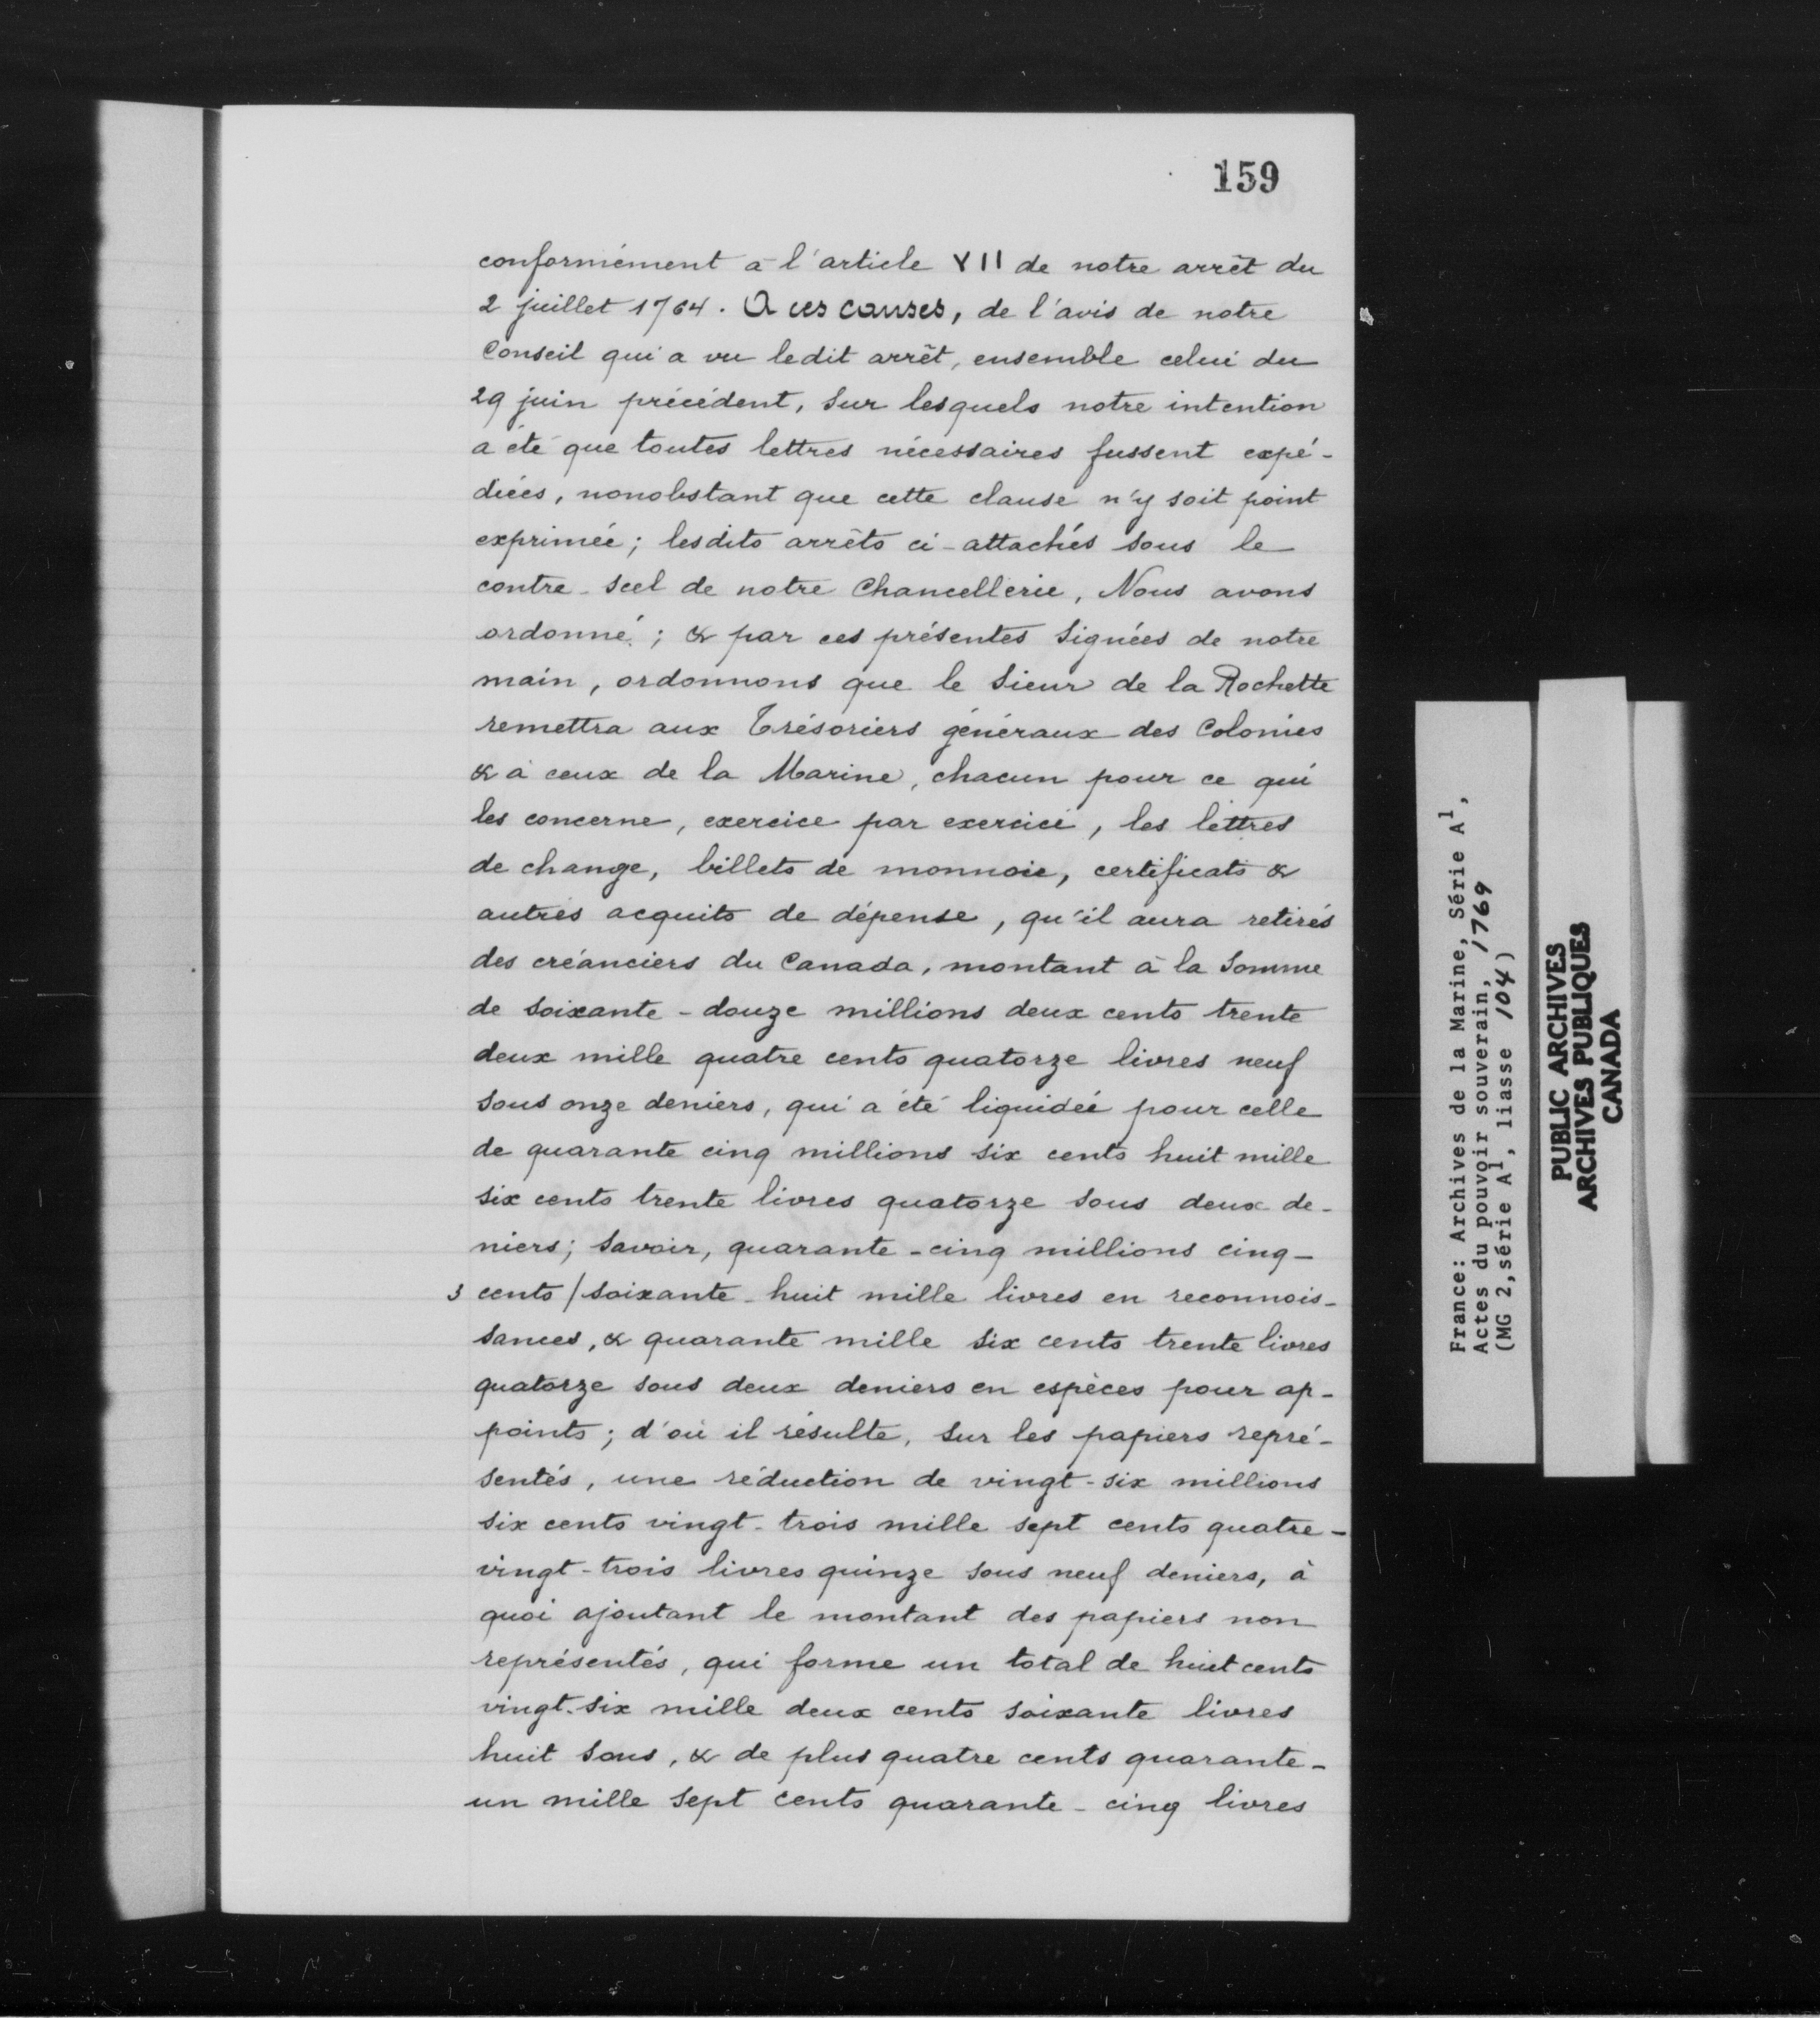 159
conformément à l'article VII de notre arrêt du
2 juillet 1764. A ces causes, de l'avis de notre
Conseil qui a vu ledit arrêt, ensemble celui du
29 juin précédent, sur lesquels notre intention
a été que toutes lettres nécessaires fussent expé-
diées, nonobstant que cette clause n'y soit point
exprimée; lesdits arrêts ci-attachés sous le
contre-scel de notre Chancellerie, Nous avons
ordonné; & par ces présentes signées de notre
main, ordonnons que le Sieur de la Rochette
remettra aux Trésoriers généraux des Colonies
& à ceux de la Marine, chacun pour ce qui
les concerne, exercice par exercice, les lettres
de change, billets de monnoie, certificats &
autres acquits de dépense, qu'il aura retirés
des créanciers du Canada, montant à la Somme
de soixante-douze millions deux cents trente
deux mille quatre cents quatorze livres neuf
sous onze deniers, qui a été liquidée pour celle
de quarante cinq millions six cents huit mille
six cents trente livres quatorze sous deux de-
niers; savoir, quarante-cinq millions cinq-
3 cents / soixante-huit mille livres en reconnois-
sances, & quarante mille six cents trente livres
quatorze sous deux deniers en espèces pour ap-
points; d'où il résulte, sur les papiers repré-
sentés, une réduction de vingt-six millions
six cents vingt-trois mille sept cents quatre-
vingt-trois livres quinze sous neuf deniers, à
quoi ajoutant le montant des papiers non
représentés, qui forme un total de huit cents
vingt-six mille deux cents soixante livres
huit sous, & de plus quatre cents quarante-
un mille sept cents quarante-cinq livres
France: Archives de la Marine, Série A1,
Actes du pouvoir souverain, 1769
(MG 2, série A1, liasse 104)
PUBLIC ARCHIVES
ARCHIVES PUBLIQUES
CANADA